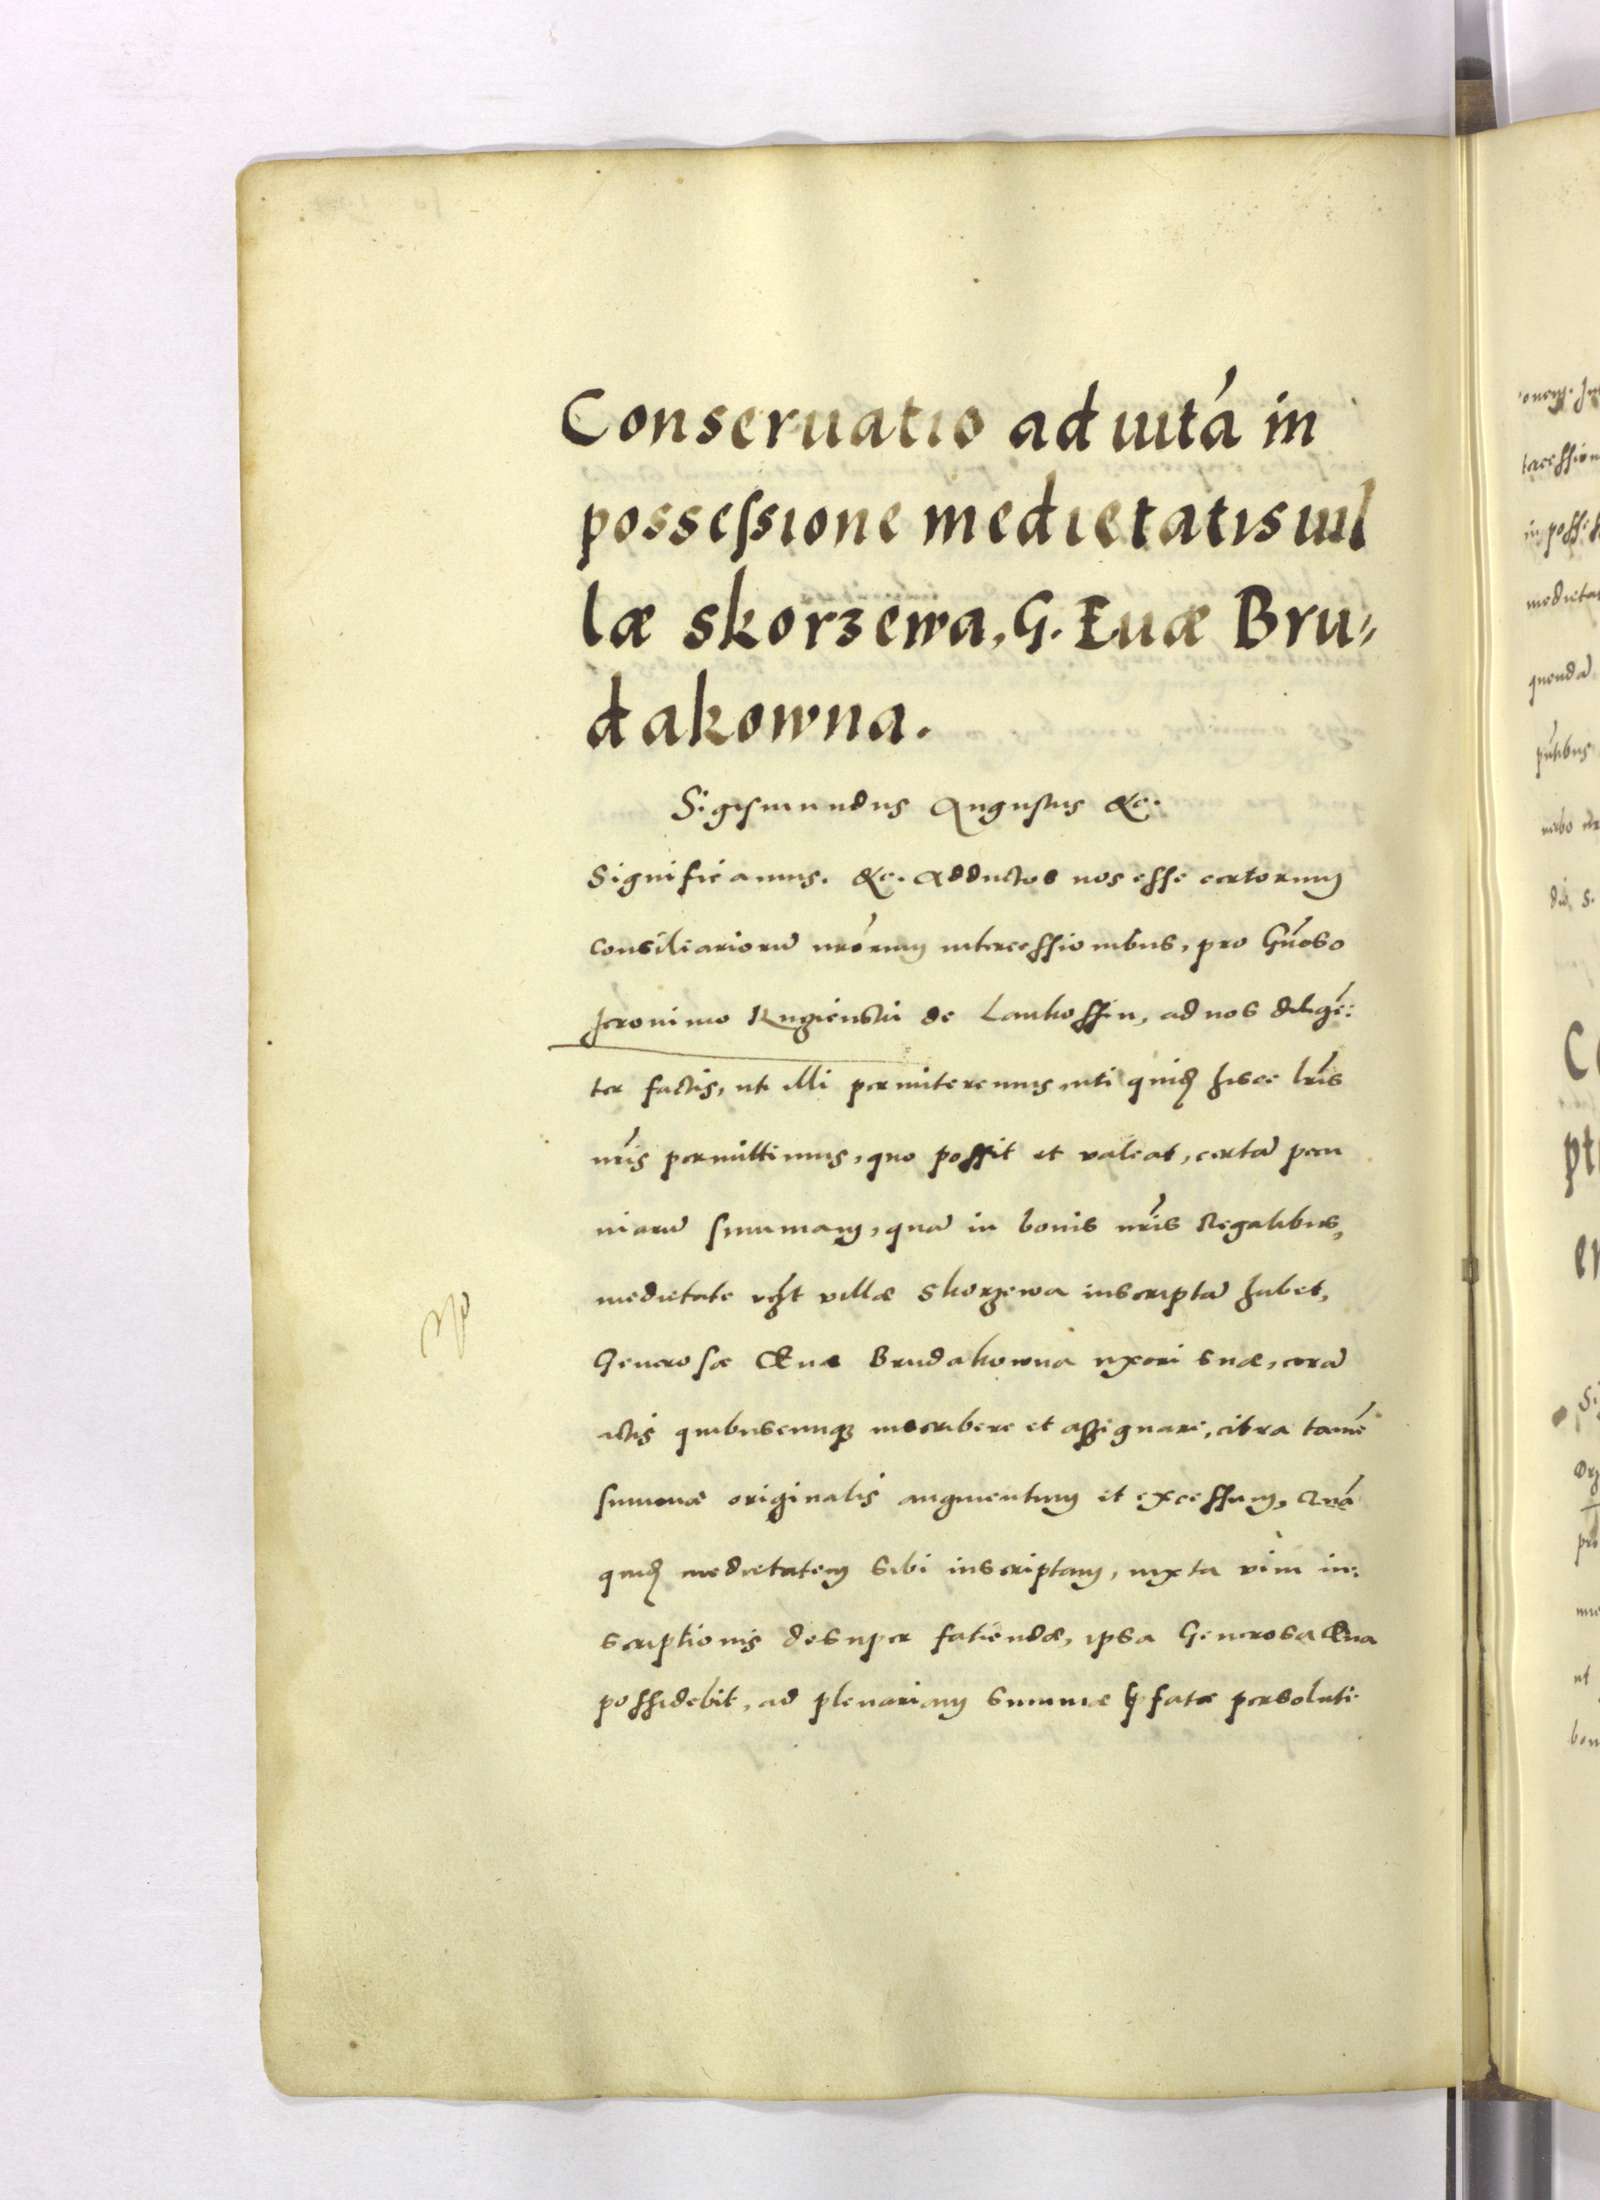 Conseruatio ad uitá in
possessione medietatis uil
læ skorzewa, G. Euæ Bru=
dakowna.
Sigismundus Augustus &c.
Significamus. &c. Adductos nos esse certorum
consiliariorū nrōrum intercessionibus, pro Gn̄oso
Jeronimo Rugienski de Lankossin, ad nos diligē:
ter factis, ut illi permiteremus, uti quidē hisce lrīs
nrīs permittimus, quo possit et valeat, certā pecu
niarū summam, quā in bonis nrīs Regalibus,
medietate vcȝt villæ Skorzewa inscriptā habet,
Generosæ Euæ Brudakowna uxori suæ, corā
actis quibuscunqȝ inscribere et assignare, citra tamē
summæ originalis augmentum et excessum, Quā
quidē medietatem sibi inscriptam, iuxta vim in:
scriptionis desuper fatiendæ, ipsa Generosa Eua
possidebit, ad plenariam summæ p̄fatæ persoluti